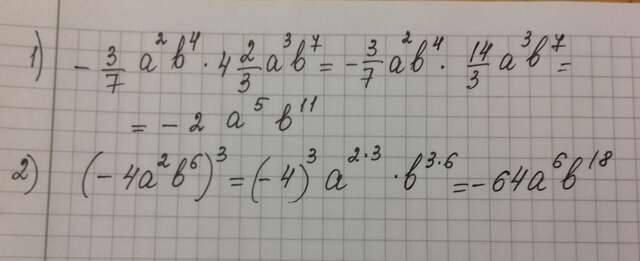 1) -3/7 a²b⁴ · 4 2/3 a³b⁷ = -3/7 a²b⁴ · 14/3 a³b⁷ =
= -2 a⁵ b¹¹
2) (-4a²b⁶)³ = (-4)³ a²·³ · b³·⁶ = -64a⁶b¹⁸